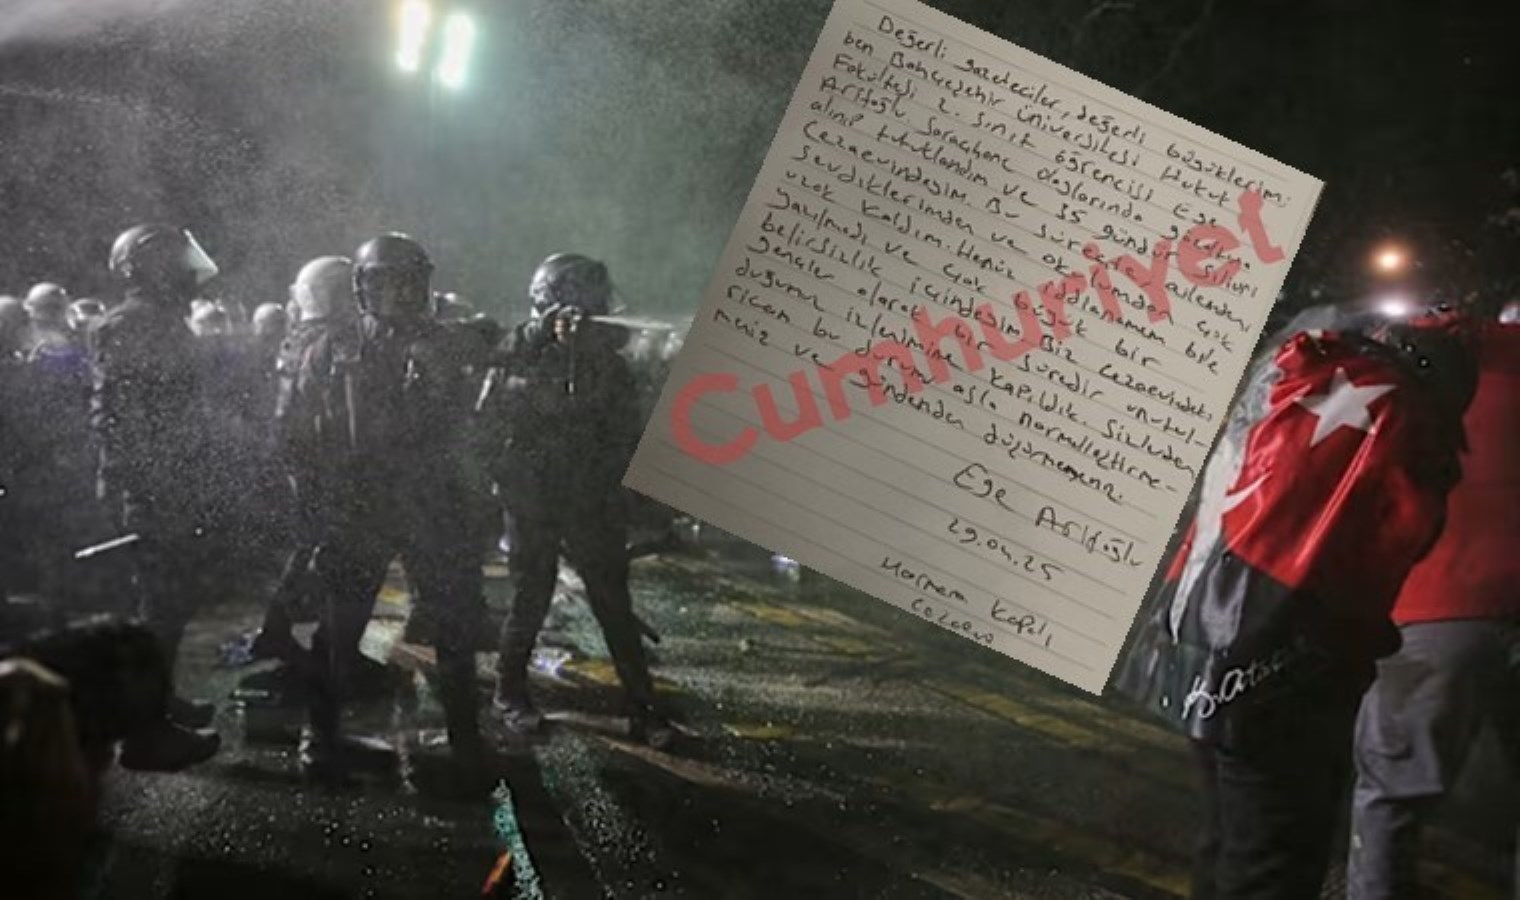 Değerli gazeteciler, değerli büyüklerim:
ben Bahçeşehir Üniversitesi Hukuk
Fakültesi 2. sınıf öğrencisi Ege
Arifoğlu. Saraçhane olaylarında gözaltına
alınıp tutuklandım ve 35 gündür Silivri
Cezaevindeyim. Bu süreçte ailemden,
sevdiklerimden ve okulumdan çok
uzak kaldım. Henüz iddianamem bile
yazılmadı ve çok büyük bir
belirsizlik içindeyim. Biz cezaevindeki
gençler olarak bir süredir unutul-
duğumuz izlenimine kapıldık. Sizlerden
ricam bu durumu asla normalleştirme-
meniz ve gündemden düşürmemeniz.
Ege Arifoğlu
29.04.25
Marmara Kapalı
Cezaevi
Cumhuriyet